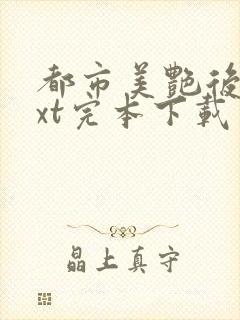 都市美艷後
xt完本下載
晶上真守